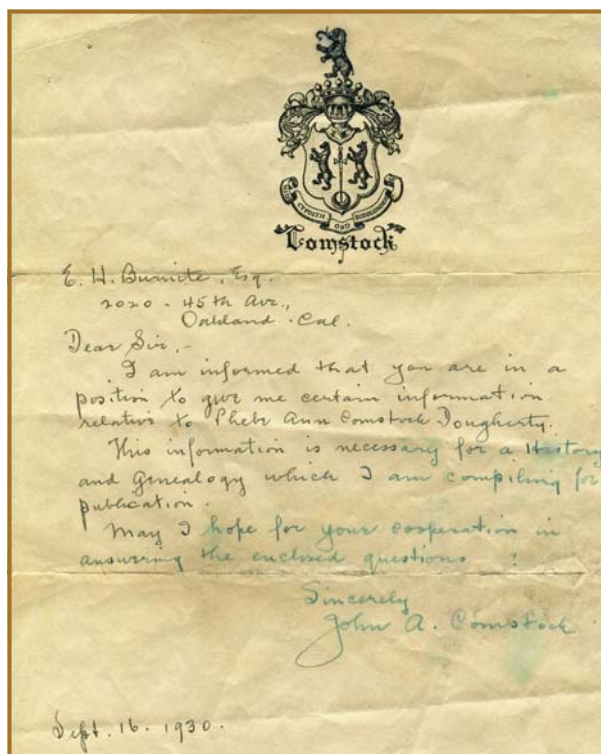 Comstock
E. H. Burnite, Esq.
2020 - 45th Ave.,
Oakland. Cal.
Dear Sir,-
I am informed that you are in a
position to give me certain information
relative to Phebe Ann Comstock Dougherty.
This information is necessary for a History
and Genealogy which I am compiling for
publication.
May I hope for your cooperation in
answering the enclosed questions ?
Sincerely
John A. Comstock
Sept. 16. 1930.